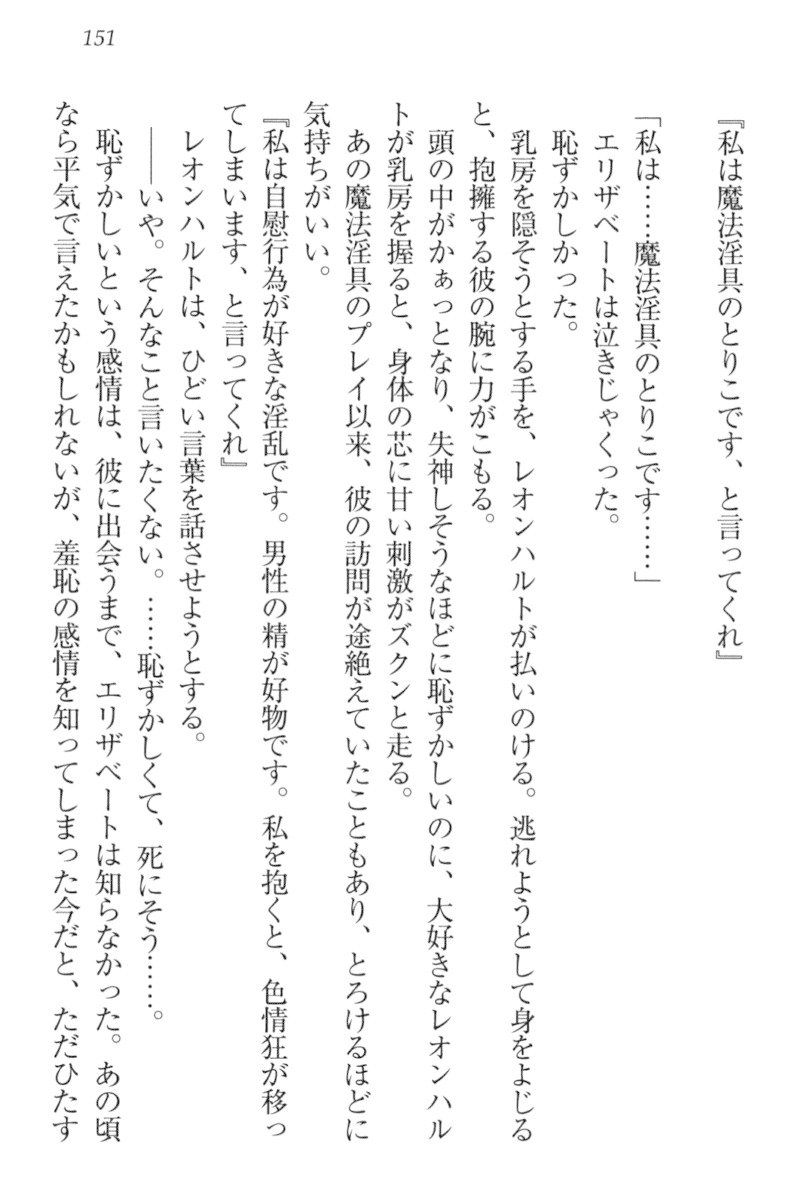 151
『私は魔法淫具のとりこです、と言ってくれ』
「私は……魔法淫具のとりこです……」
エリザベートは泣きじゃくった。
恥ずかしかった。
乳房を隠そうとする手を、レオンハルトが払いのける。逃れようとして身をよじる
と、抱擁する彼の腕に力がこもる。
頭の中がかぁっとなり、失神しそうなほどに恥ずかしいのに、大好きなレオンハル
トが乳房を握ると、身体の芯に甘い刺激がズクンと走る。
あの魔法淫具のプレイ以来、彼の訪問が途絶えていたこともあり、とろけるほどに
気持ちがいい。
『私は自慰行為が好きな淫乱です。男性の精が好物です。私を抱くと、色情狂が移っ
てしまいます、と言ってくれ』
レオンハルトは、ひどい言葉を話させようとする。
――いや。そんなこと言いたくない。……恥ずかしくて、死にそう……。
恥ずかしいという感情は、彼に出会うまで、エリザベートは知らなかった。あの頃
なら平気で言えたかもしれないが、羞恥の感情を知ってしまった今だと、ただひたす